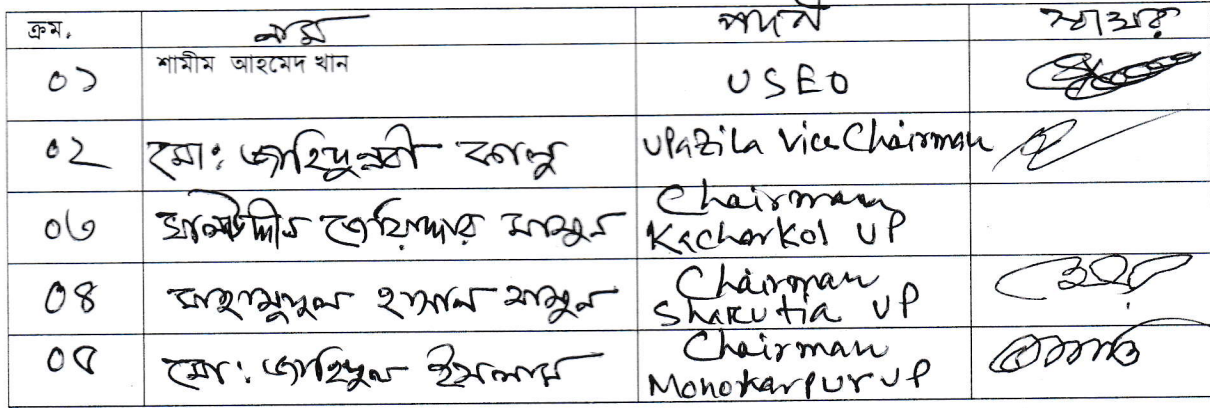 ক্রম. নাম পদবী স্বাক্ষর
০১ শামীম আহমেদ খান USEO
০২ মো: জাহিদুন্নবী কালু UPazila Vice Chairman
০৩ জোয়ার্দ্দার মামুন Chairman
Kacharkol UP
০৪ মাহামুদুল হাসান মামুন Chairman
Sharutia UP
০৫ মো: জাহিদুল ইসলাম Chairman
Monoharpur UP